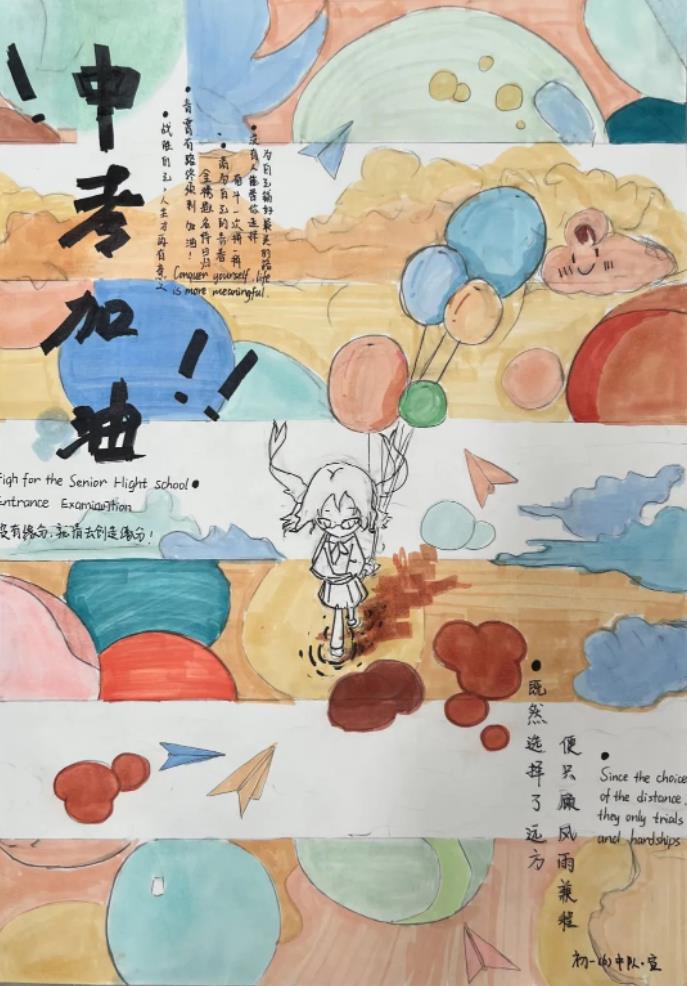 ！
中考加油！！
•没有人能替你选择
•再为自己的青春
奋斗一次拼一拼
•青霄有路终须到 加油！
•战胜自己，人生才更有意义
Conquer yourself, life
is more meaningful.
Figh for the Senior Hight school•
Entrance Examination
没有缘分，就请去创造缘分！
•既然选择了远方
便只顾风雨兼程
•
Since the choice
of the distance,
they only trials
and hardships
初一(6)中队·宣